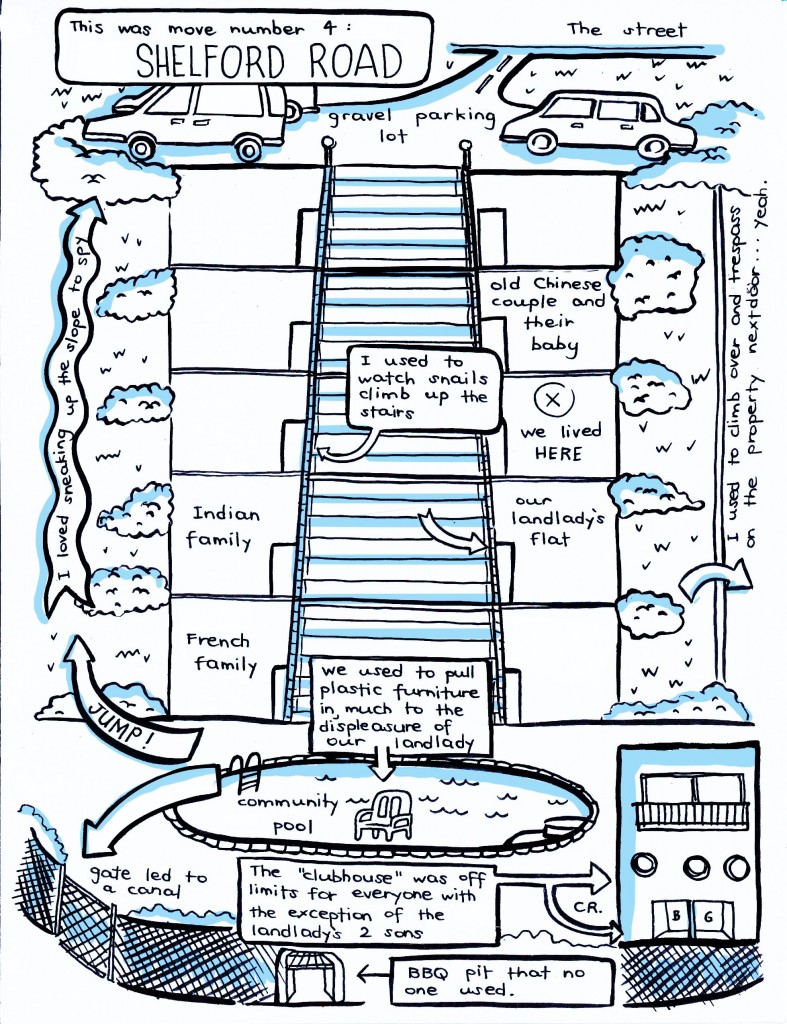 This was move number 4:
SHELFORD ROAD
The street
gravel parking
lot
I loved sneaking up the slope to spy
old Chinese
couple and
their
baby
I used to
watch snails
climb up the
stairs
X
we lived
HERE
I used to climb over and trespass
on the property nextdoor... yeah.
Indian
family
our
landlady's
flat
French
family
we used to pull
plastic furniture
in, much to the
displeasure of
our landlady
JUMP!
community
pool
gate led to
a canal
The "clubhouse" was off
limits for everyone with
the exception of the
landlady's 2 sons
C.R.
B G
BBQ pit that no
one used.